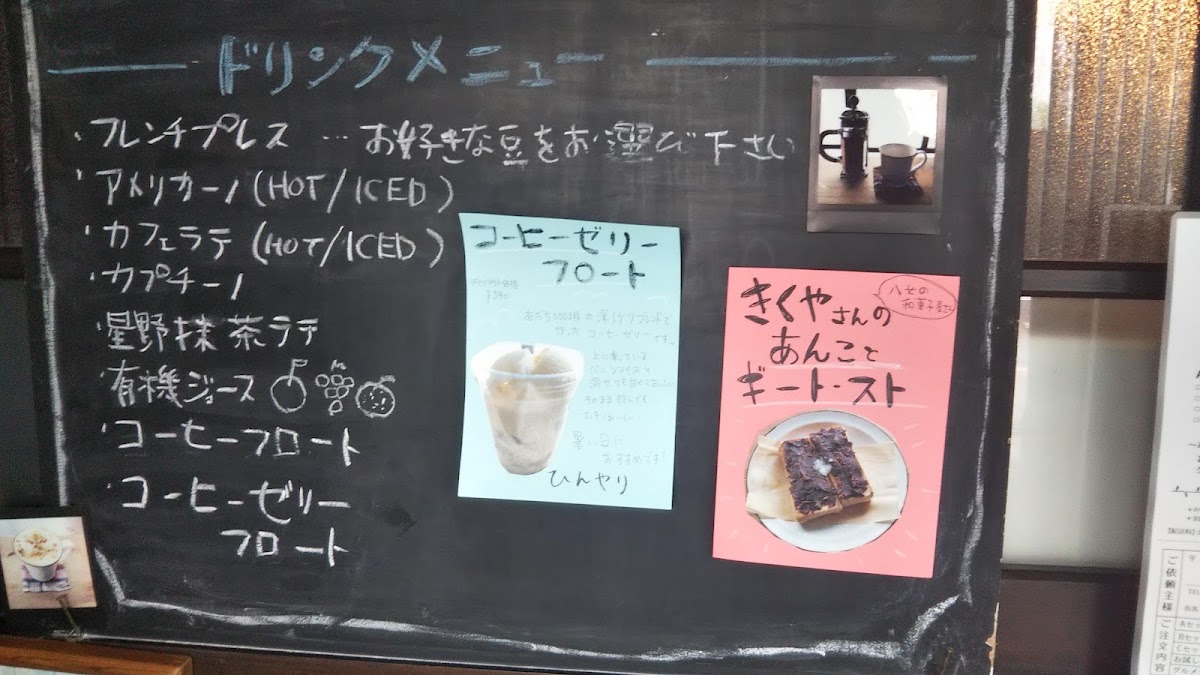 ドリンクメニュー
・フレンチプレス …お好きな豆をお選び下さい
・アメリカーノ(HOT/ICED)
・カフェラテ(HOT/ICED)
・カプチーノ
・星野抹茶ラテ
・有機ジュース
・コーヒーフロート
・コーヒーゼリー
フロート
コーヒーゼリー
フロート
の深煎りブレンドで
作ったコーヒーゼリーです。
上に乗っている
バニラアイスを
暑い日に
おすすめです!
ひんやり
八女の
和菓子屋さん
きくやさんの
あんこと
ギートースト
ご依頼主様
ご注文内容
Aセッ
Bセッ
Cセッ
お試し
グルメ